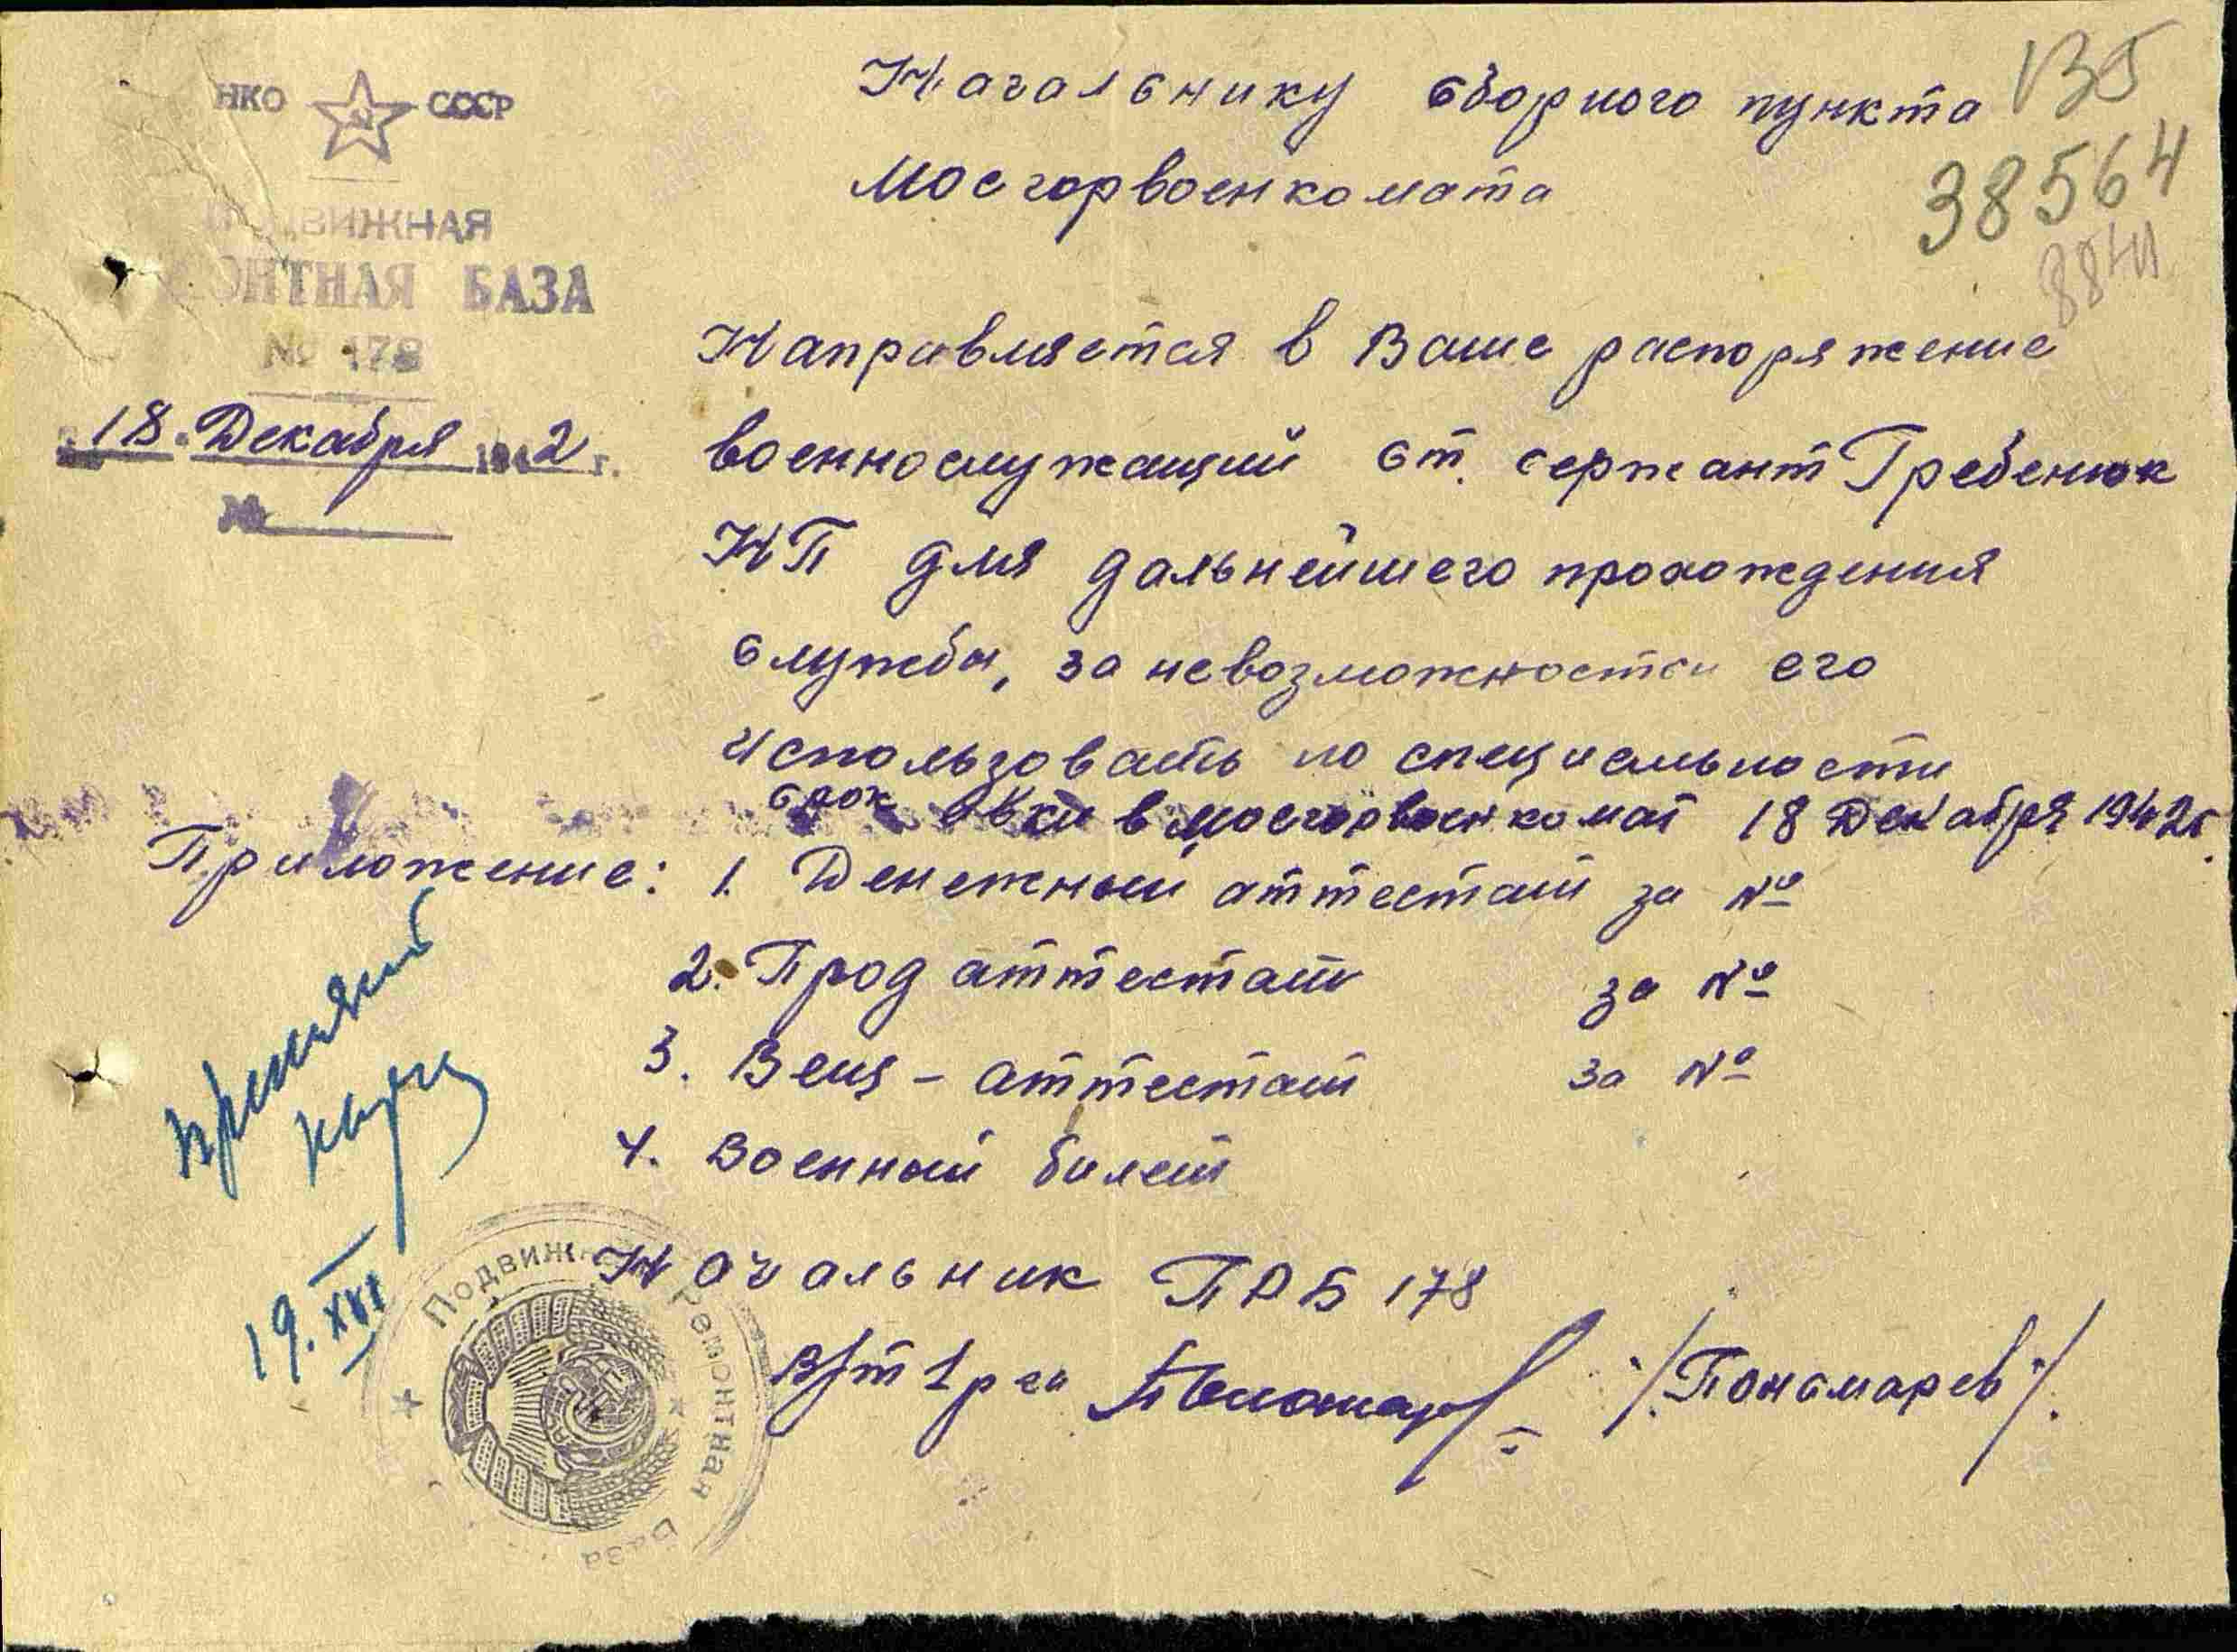 НКО СССР
ПОДВИЖНАЯ
РЕМОНТНАЯ БАЗА
№ 178
18. Декабря 1942 г.
№
Начальнику сборного пункта
Мосгорвоенкомата
135
38564
Направляется в Ваше распоряжение
военнослужащий ст. сержант Гребенюк
НП для дальнейшего прохождения
службы, за невозможностью его
использовать по специальности
срок явки в мосгорвоенкомат 18 Декабря 1942г.
Приложение: 1. Денежный аттестат за №
2. Прод аттестат за №
3. Вещ-аттестат за №
4. Военный билет
19. XII
Начальник ПРБ 178
В/т 1 ранга /Пономарев/.
Подвижная Ремонтная База